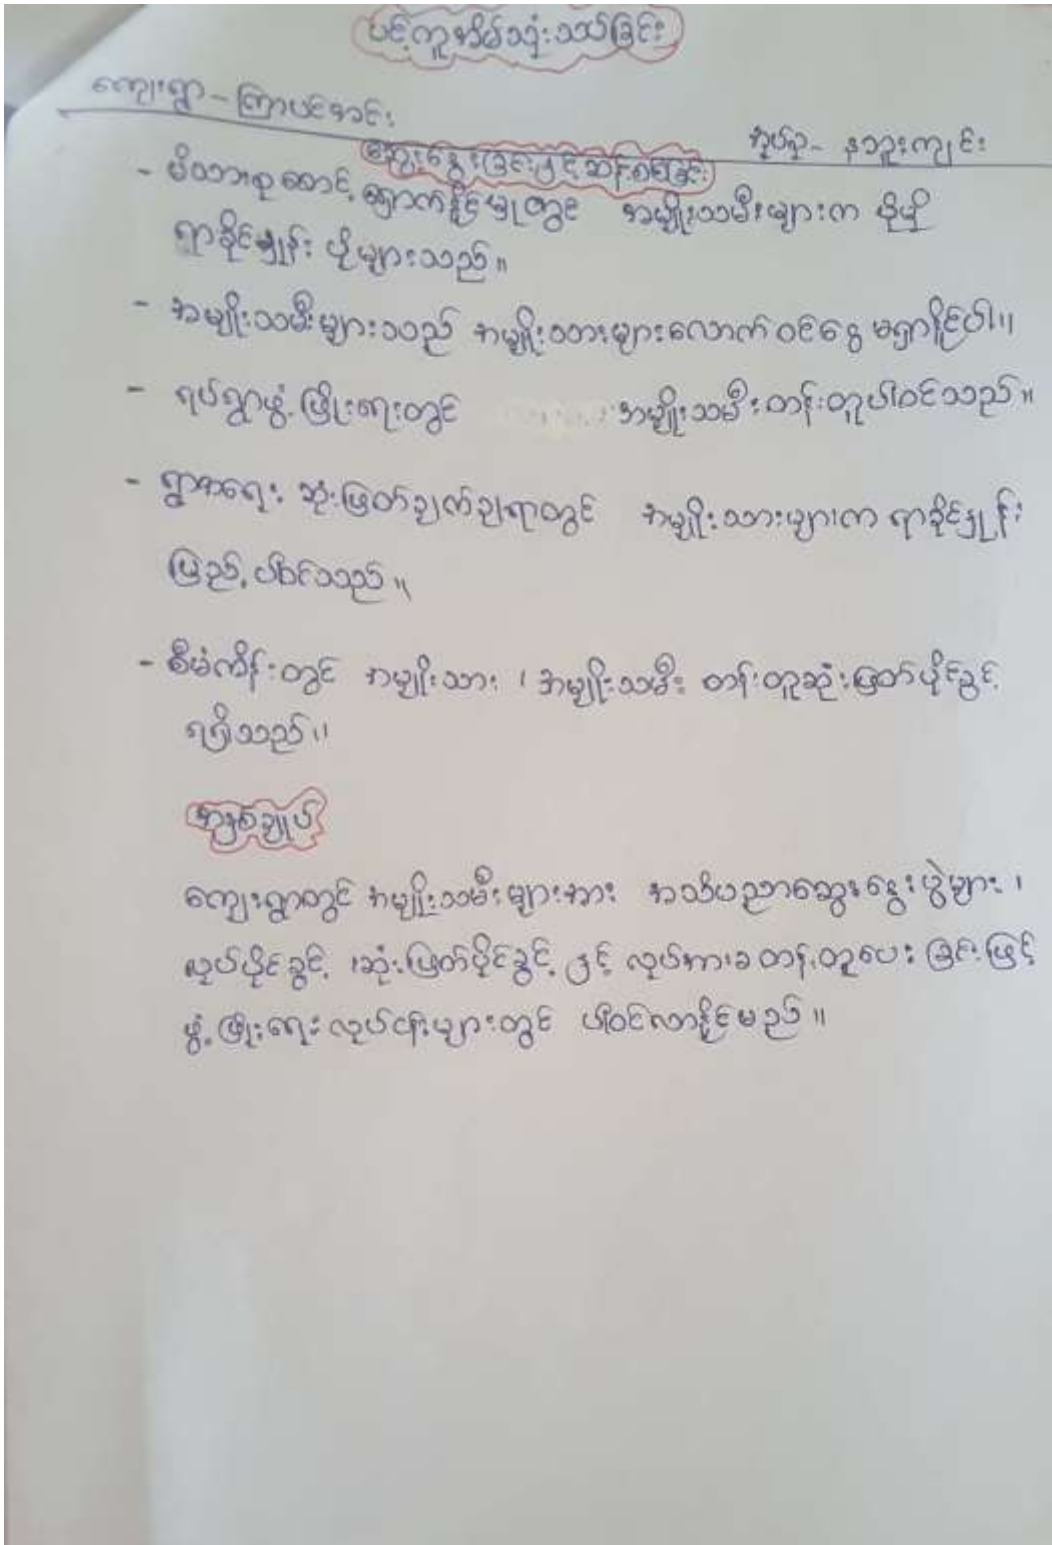 ပင့်ကူအိမ်သုံးသပ်ခြင်း
ကျေးရွာ - ကြာပင်အင်း
အုပ်စု - နဘူးကျင်း
ဆွေးနွေးခြင်းနှင့်ဆန်းစစ်ခြင်း
- မိသားစုစောင့်ရှောက်နိုင်မှုတွင် အမျိုးသမီးများက ပိုမို
ရာခိုင်နှုန်း ပိုများသည်။
- အမျိုးသမီးများသည် အမျိုးသားများလောက် ဝင်ငွေ မရှာနိုင်ပါ။
- ရပ်ရွာဖွံ့ဖြိုးရေးတွင် အမျိုးသမီးတန်းတူပါဝင်သည်။
- ရွာ့အရေး ဆုံးဖြတ်ချက်ချရာတွင် အမျိုးသားများက ရာခိုင်နှုန်း
ပြည့် ပါဝင်သည်။
- စီမံကိန်းတွင် အမျိုးသား ၊ အမျိုးသမီး တန်းတူဆုံးဖြတ်ပိုင်ခွင့်
ရရှိသည်။
အနှစ်ချုပ်
ကျေးရွာတွင် အမျိုးသမီးများအား အသိပညာဆွေးနွေးပွဲများ ၊
လုပ်ပိုင်ခွင့် ၊ဆုံးဖြတ်ပိုင်ခွင့် နှင့် လုပ်အားခ တန်းတူပေးခြင်းဖြင့်
ဖွံ့ဖြိုးရေးလုပ်ငန်းများတွင် ပါဝင်လာနိုင်မည်။